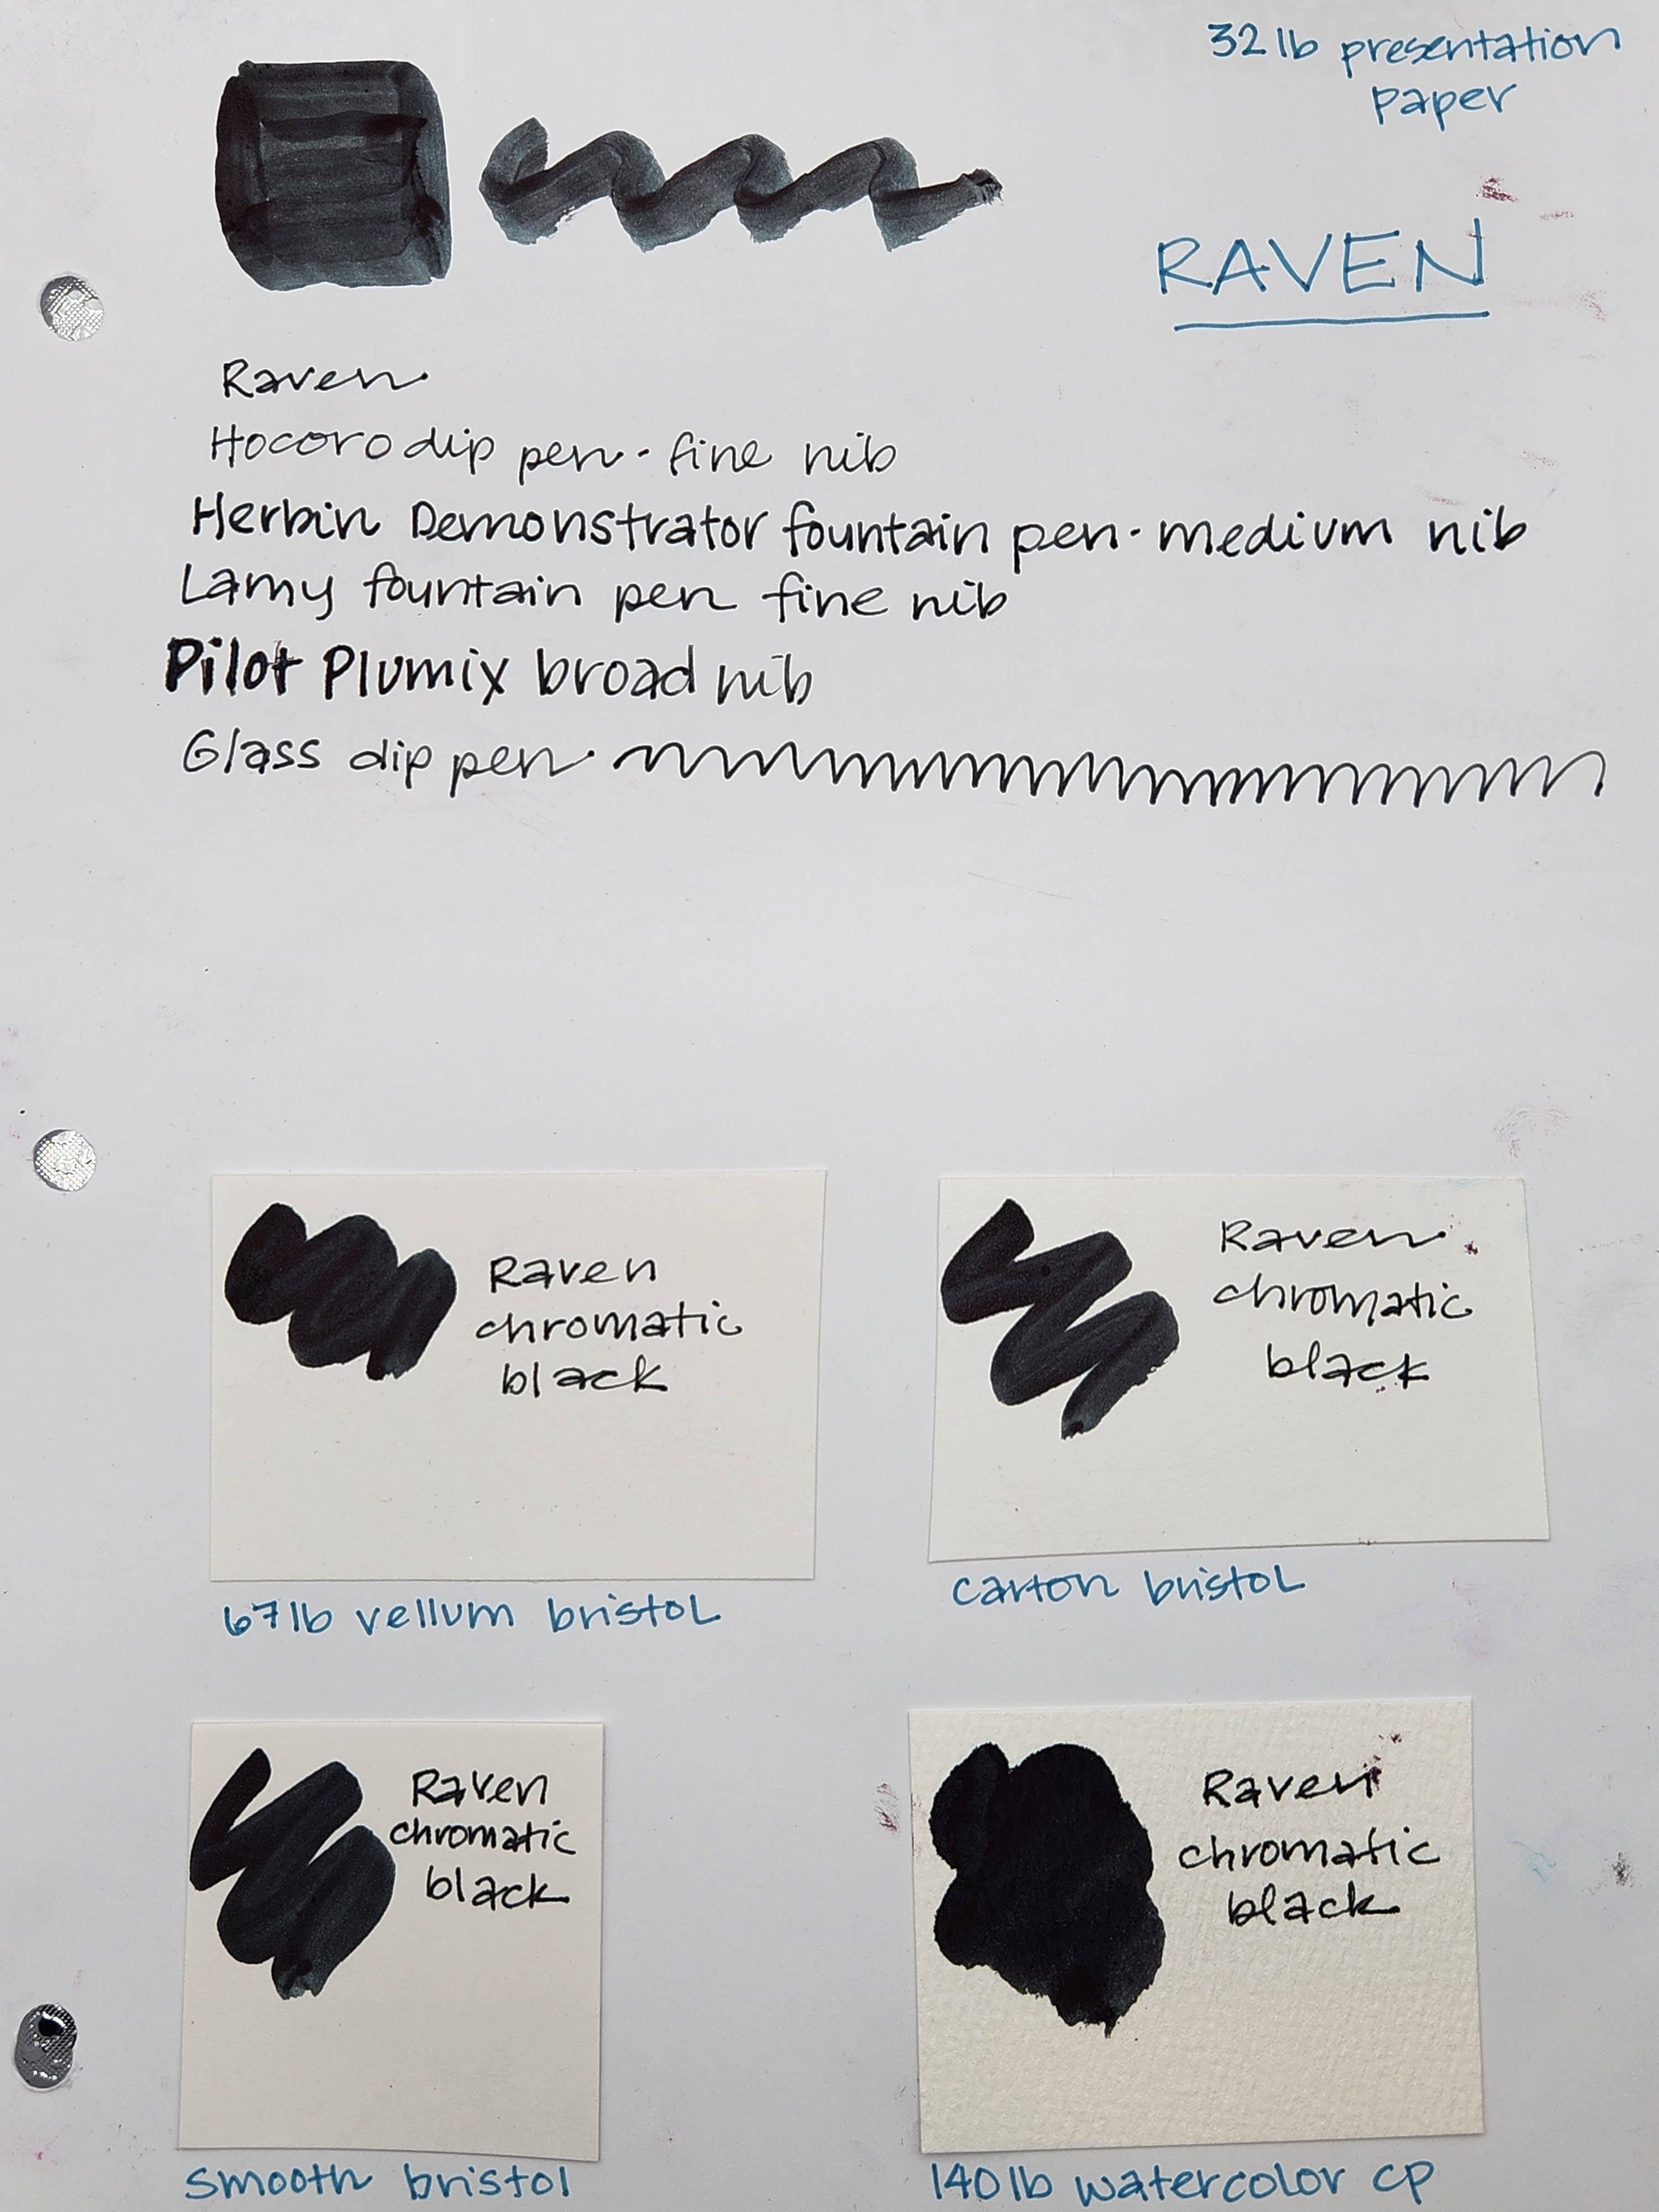 32 lb presentation
paper
RAVEN
Raven
Hocoro dip pen - fine nib
Herbin Demonstrator fountain pen - medium nib
Lamy fountain pen fine nib
Pilot Plumix broad nib
Glass dip pen
Raven
chromatic
black
67 lb vellum bristol
Raven
chromatic
black
carton bristol
Raven
chromatic
black
smooth bristol
Raven
chromatic
black
140 lb watercolor cp